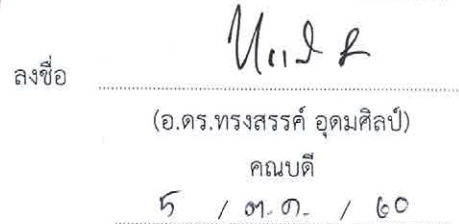 ลงชื่อ
(อ.ดร.ทรงสรรค์ อุดมศิลป์)
คณบดี
5 / ต.ค. / ๖๐